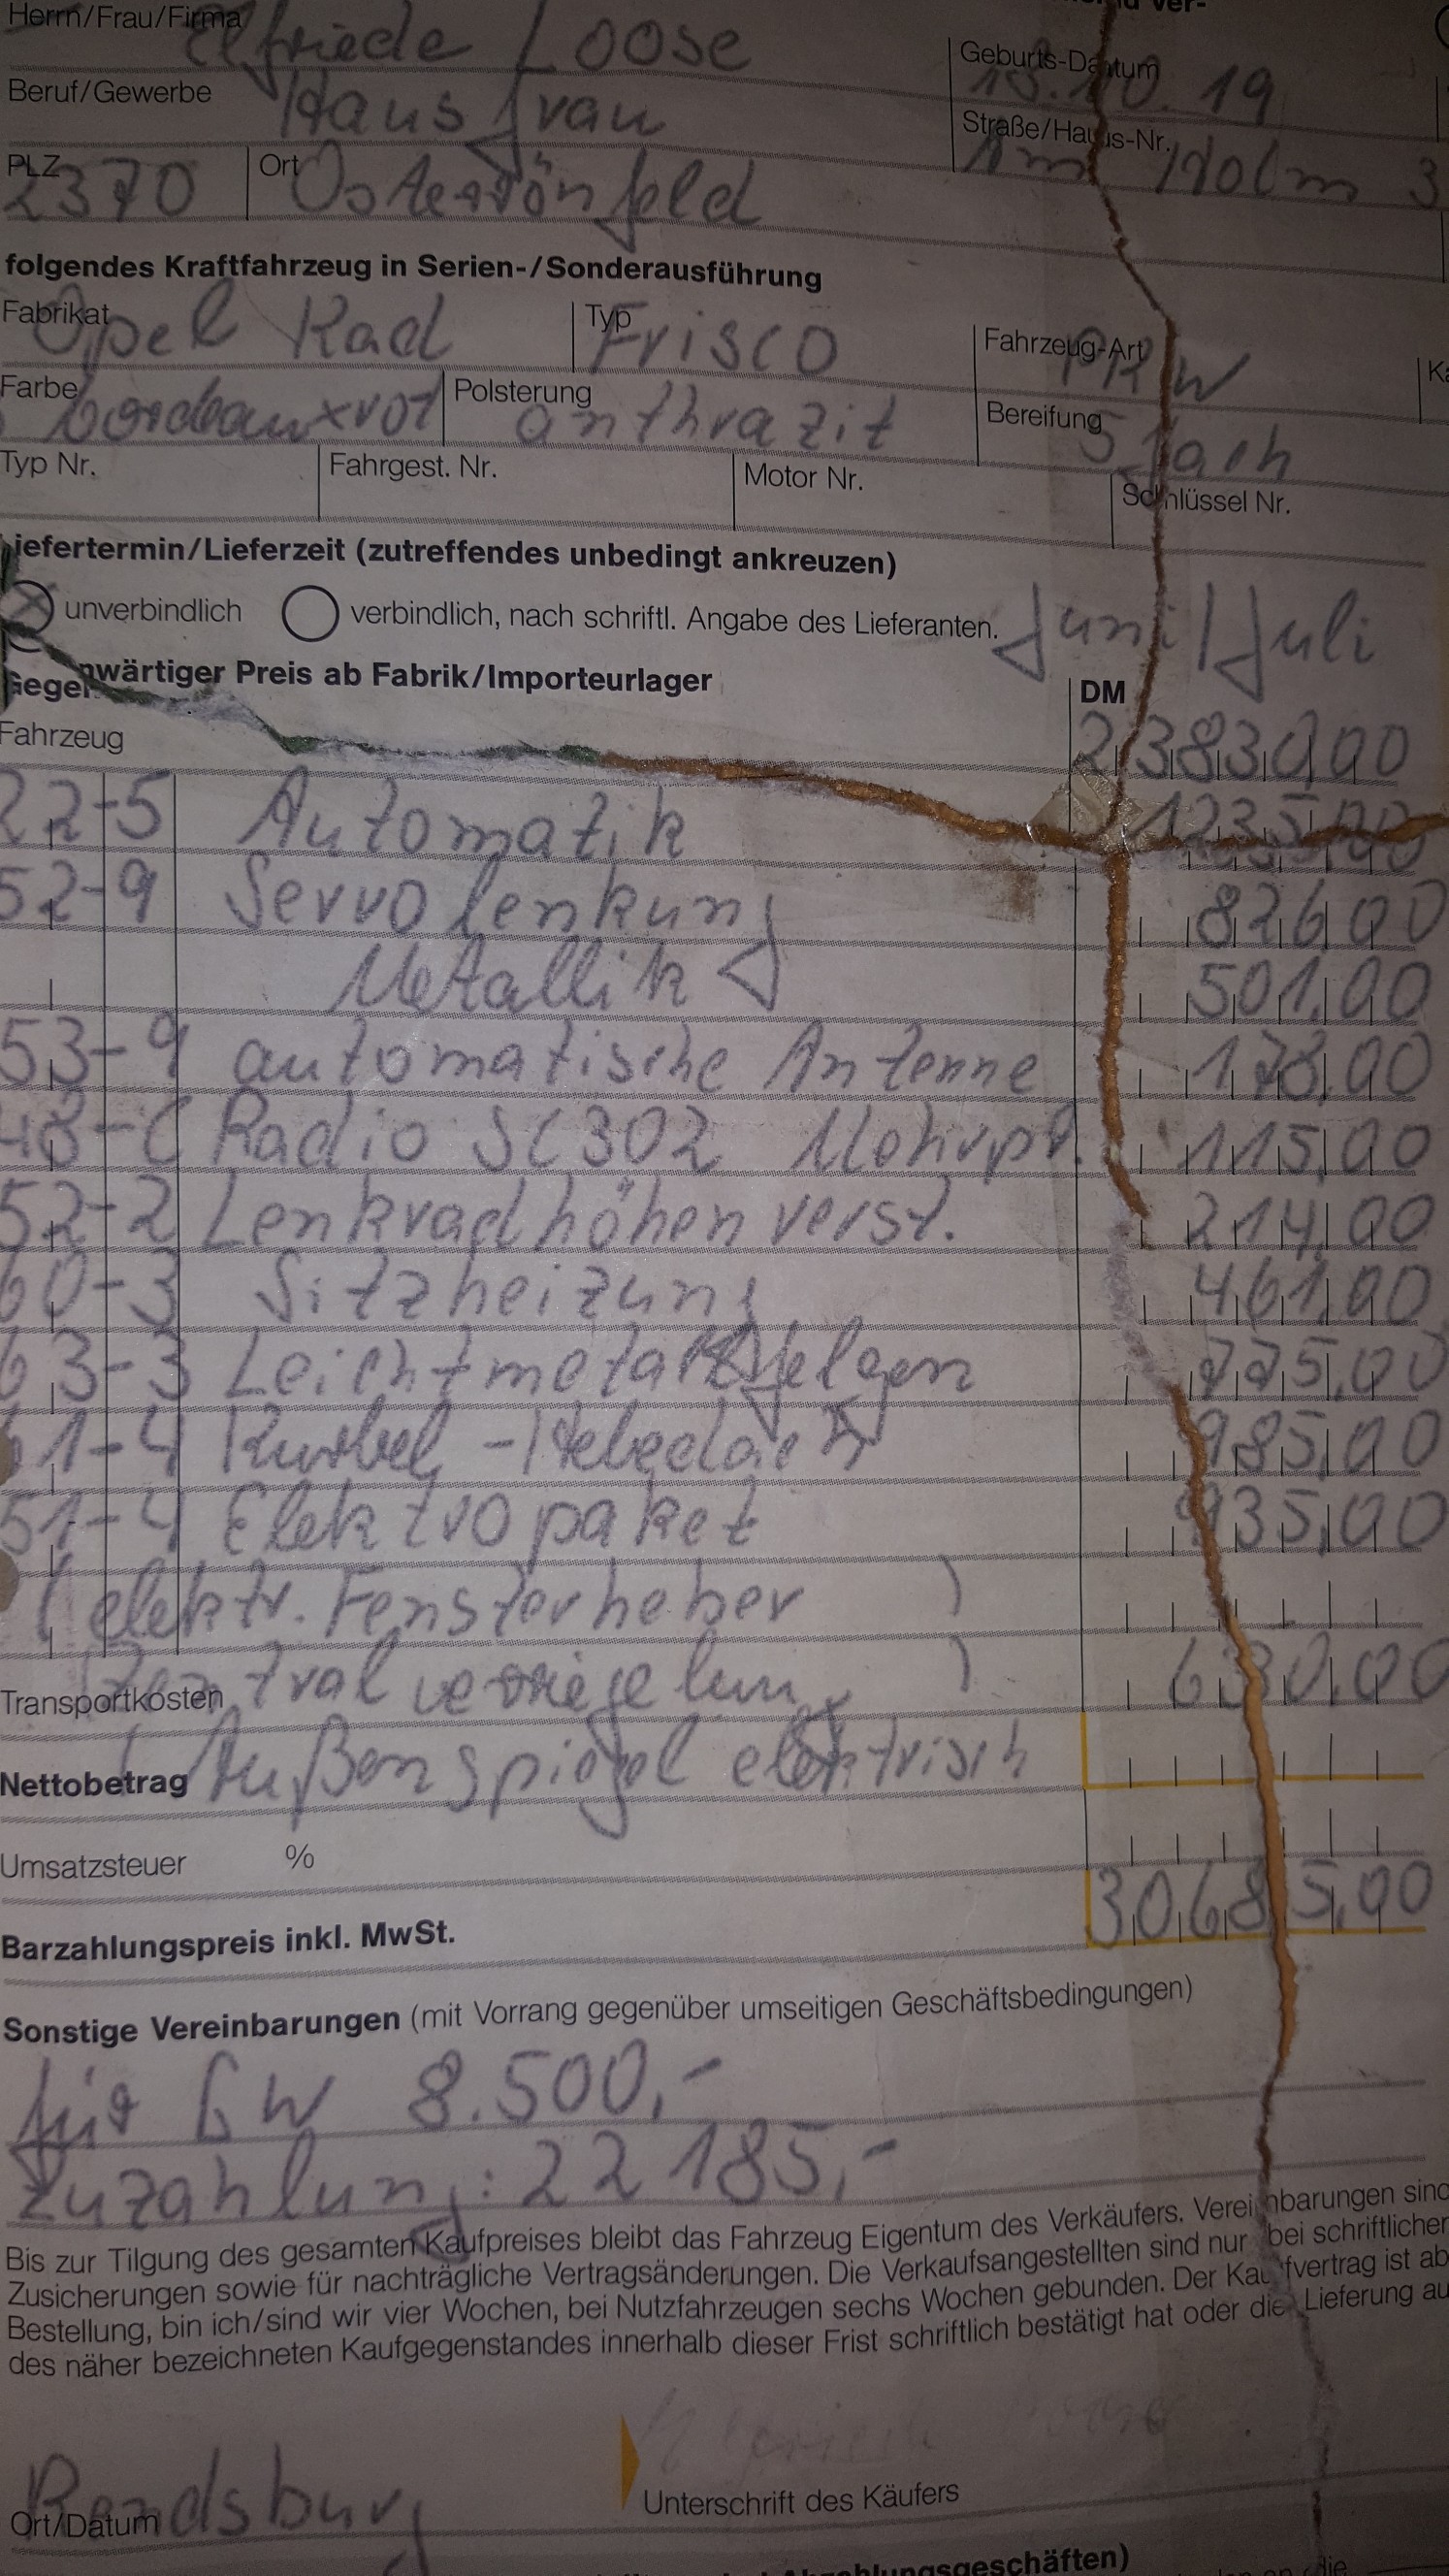 Herrn/Frau/Firma Elfriede Loose
Geburts-Datum 19
Beruf/Gewerbe Hausfrau
Straße/Haus-Nr. Am Holm 3
PLZ 2370 Ort Osterrönfeld
folgendes Kraftfahrzeug in Serien-/Sonderausführung
Fabrikat Opel Kad Typ Frisco Fahrzeug-Art PKW
Farbe bordeauxrot Polsterung anthrazit Bereifung 5 fach
Typ Nr. Fahrgest. Nr. Motor Nr. Schlüssel Nr.
iefertermin/Lieferzeit (zutreffendes unbedingt ankreuzen)
unverbindlich verbindlich, nach schriftl. Angabe des Lieferanten. Juni/Juli
Gegenwärtiger Preis ab Fabrik/Importeurlager DM
Fahrzeug 23830,00
22-5 Automatik 1235,00
52-9 Servolenkung 826,00
Metallik 501,00
53-9 automatische Antenne 178,00
48-C Radio SC302 Mehrpr. 115,00
52-2 Lenkradhöhenverst. 214,00
60-3 Sitzheizung 461,00
63-3 Leichtmetallfelgen 775,00
1-4 Kurbel-Hebedach 985,00
51-4 Elektropaket 935,00
( elektr. Fensterheber )
Transportkosten Zentralverriegelung ) 630,00
Nettobetrag ( Außenspiegel elektrisch
Umsatzsteuer %
Barzahlungspreis inkl. MwSt. 30685,00
Sonstige Vereinbarungen (mit Vorrang gegenüber umseitigen Geschäftsbedingungen)
für GW 8.500,-
Zuzahlung: 22185,-
Bis zur Tilgung des gesamten Kaufpreises bleibt das Fahrzeug Eigentum des Verkäufers. Vereinbarungen sind
Zusicherungen sowie für nachträgliche Vertragsänderungen. Die Verkaufsangestellten sind nur bei schriftlicher
Bestellung, bin ich/sind wir vier Wochen, bei Nutzfahrzeugen sechs Wochen gebunden. Der Kaufvertrag ist ab
des näher bezeichneten Kaufgegenstandes innerhalb dieser Frist schriftlich bestätigt hat oder die Lieferung au
Ort/Datum Rendsburg Unterschrift des Käufers